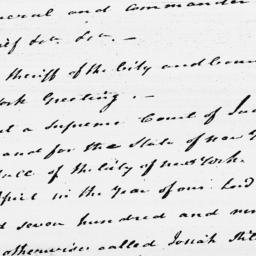 eneral and Commander
ief &c. &c. —
Sheriff of the City and Coun
York Greeting. —
at a Supreme Court of Ju
and for the State of new Y
Hall of the City of new York.
April in the Year of our Lord
d seven hundred and nin
otherwise called Josiah Phil